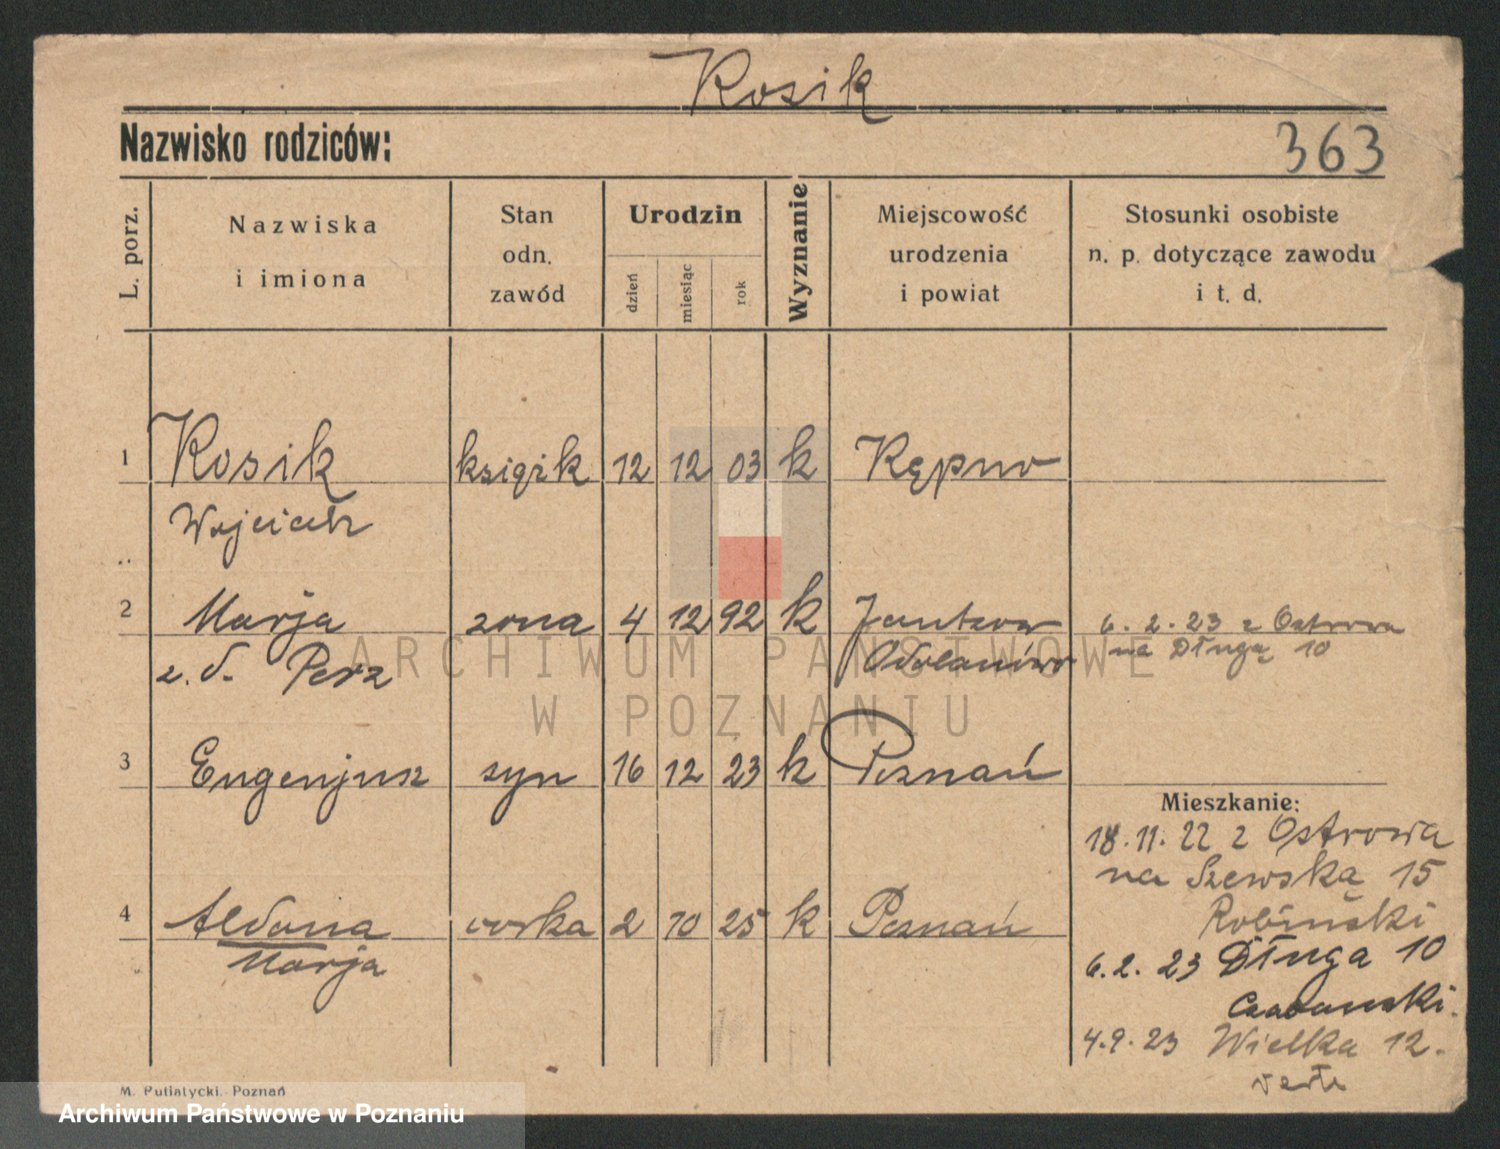 Kosik
Nazwisko rodziców:
363
L. porz.
Nazwiska
i imiona
Stan
odn.
zawód
Urodzin
dzień
miesiąc
rok
Wyznanie
Miejscowość
urodzenia
i powiat
Stosunki osobiste
n. p. dotyczące zawodu
i t. d.
1 Kosik książk 12 12 03 k Kępno
Wojciech
2 Marja żona 4 12 92 k 6. 2. 23 z Ostrowa
z. d. Perz Odolanów na Długą 10
ARCHIWUM PAŃSTWOWE
W POZNANIU
3 Eugenjusz syn 16 12 23 k Poznań
Mieszkanie:
18. 11. 22 z Ostrowa
na Szewską 15
Robiński
4 Aldona córka 2 10 25 k Poznań
Marja
6. 2. 23 Długa 10
4. 9. 23 Wielka 12.
verte
M. Putiatycki. Poznań
Archiwum Państwowe w Poznaniu